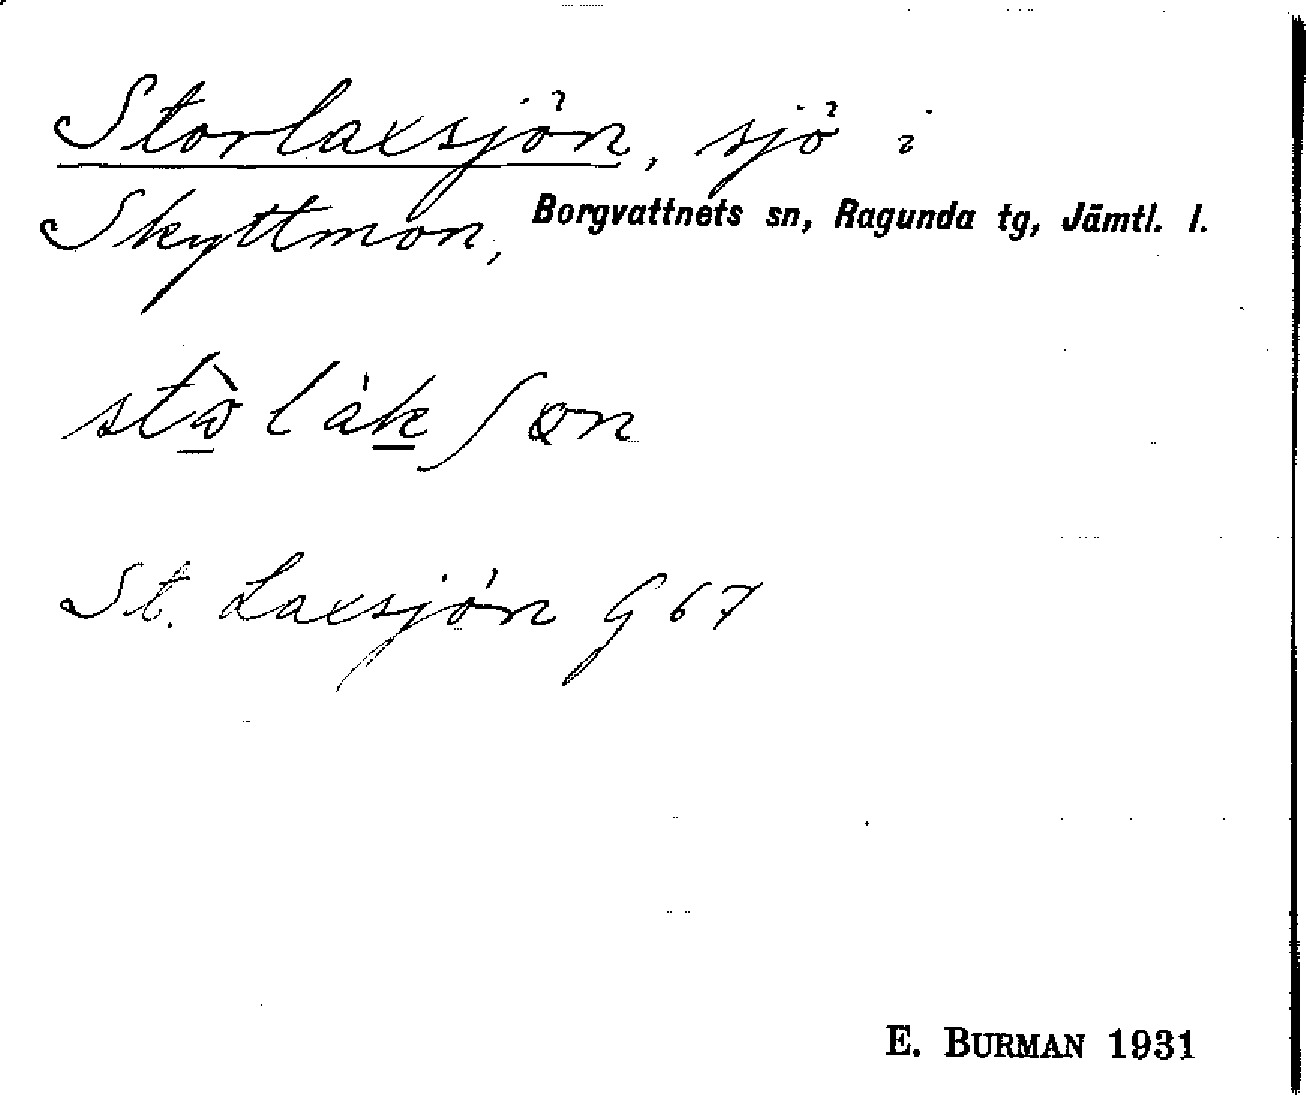 Storlaxsjön, sjö i
Skyttmon, Borgvattnets sn, Ragunda tg, Jämtl. l.
St. Laxsjön G 67
E. BURMAN 1931